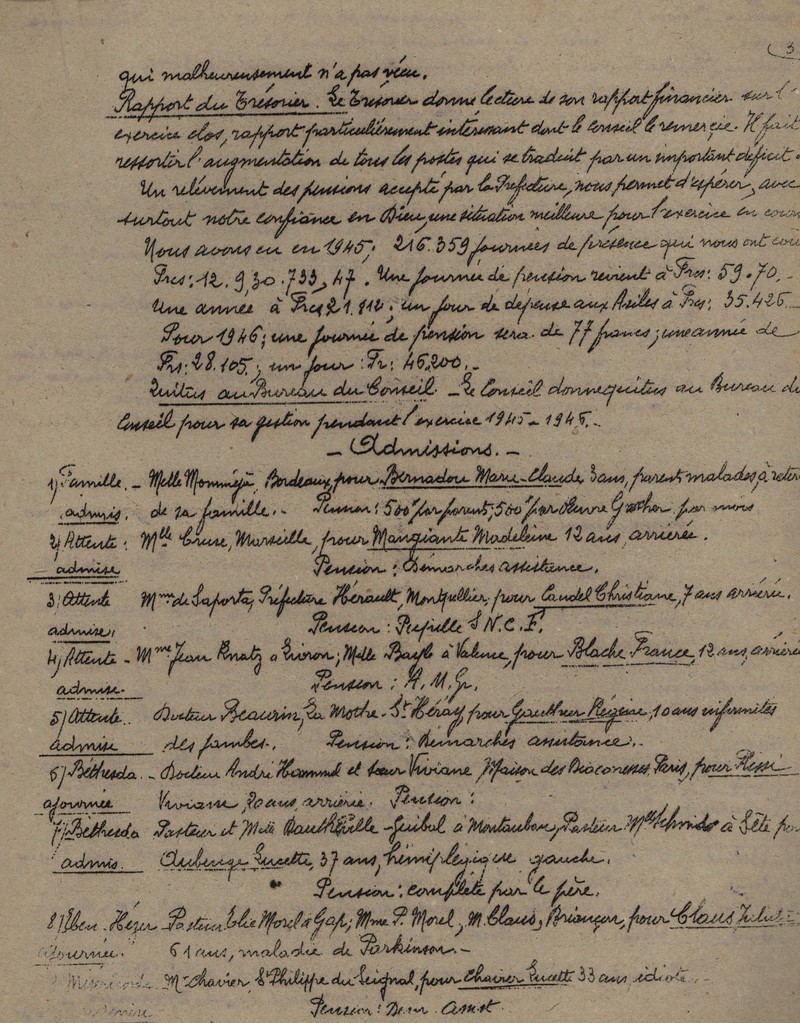 3
qui malheureusement n'a pas vécu.
Rapport du Trésorier. Le Trésorier donne lecture de son rapport financier sur l'
exercice clos, rapport particulièrement intéressant dont le conseil le remercie. Il fait
ressortir l'augmentation de tous les postes qui se traduit par un important déficit.
Un relèvement des pensions accepté par la Préfecture, nous permet d'espérer, avec
surtout notre confiance en Dieu, une situation meilleure pour l'exercice en cours
Nous avons eu en 1945; 216.359 journées de présence qui nous ont coû
Frcs: 12.9,30.733,47. Une journée de pension revient à Frcs: 59.70.-
Une année à Frcs 21.812; un jour de dépense aux Asiles à Frcs: 35.426
Pour 1946; une journée de pension sera de 77 francs; une année de
Frs: 28.105; un jour: Fr: 46,200.-
Quitus au Bureau du Conseil - Le Conseil donne quitus au Bureau du
Conseil pour sa gestion pendant l'exercice 1945-1946.-
- Admissions. -
1) Famille. - Melle Bordeaux, pour Bernadou Marie-Claude, 3 ans, parent malades, à
admis. de sa famille. - Pension: 500 par parent; 500 par par mois
2) Attente: Mlle Cruse, Marseille, pour Mangiante Madeleine 12 ans, arriérée.
admise Pension: Démarches assistance.
3) Attente Mme de Saporta, Préfecture Hérault, Montpellier, pour Caudel Christiane, 7 ans arriérée.
admise, Pension: Pupille S.N.C.F.
4) Attente - Mme Jean à Livron; Melle à Valence, pour Blache France, 12 ans, arriérée
admise. Pension: A.M.G.
5) Attente. Docteur Beaurin, La Mothe-St Héray, pour Régine, 10 ans infirmités
admise des jambes. Pension: Démarches assistance.
6) Béthesda. - Docteur André et sœur Viviane, Maison des Diaconesses Paris, pour
ajournée Viviane, 20 ans, arriérée. Pension:
7) Béthesda Pasteur et Melle -Guibal à Montauban, Pasteur à Sète
admis. Lucette, 37 ans, hémiplégique gauche.
Pension: complète par le père.
8) Eben-Hézer Pasteur Elie Morel à Gap; Mme P. Morel, M. Claus, Briançon, pour Claus
ajournée. 61 ans, maladie de Parkinson. -
Miséricorde Mr Chavier, St Philippe du Seignal, pour Chavier Lucette 33 ans, idiote.
Pension: Dem. Assist.